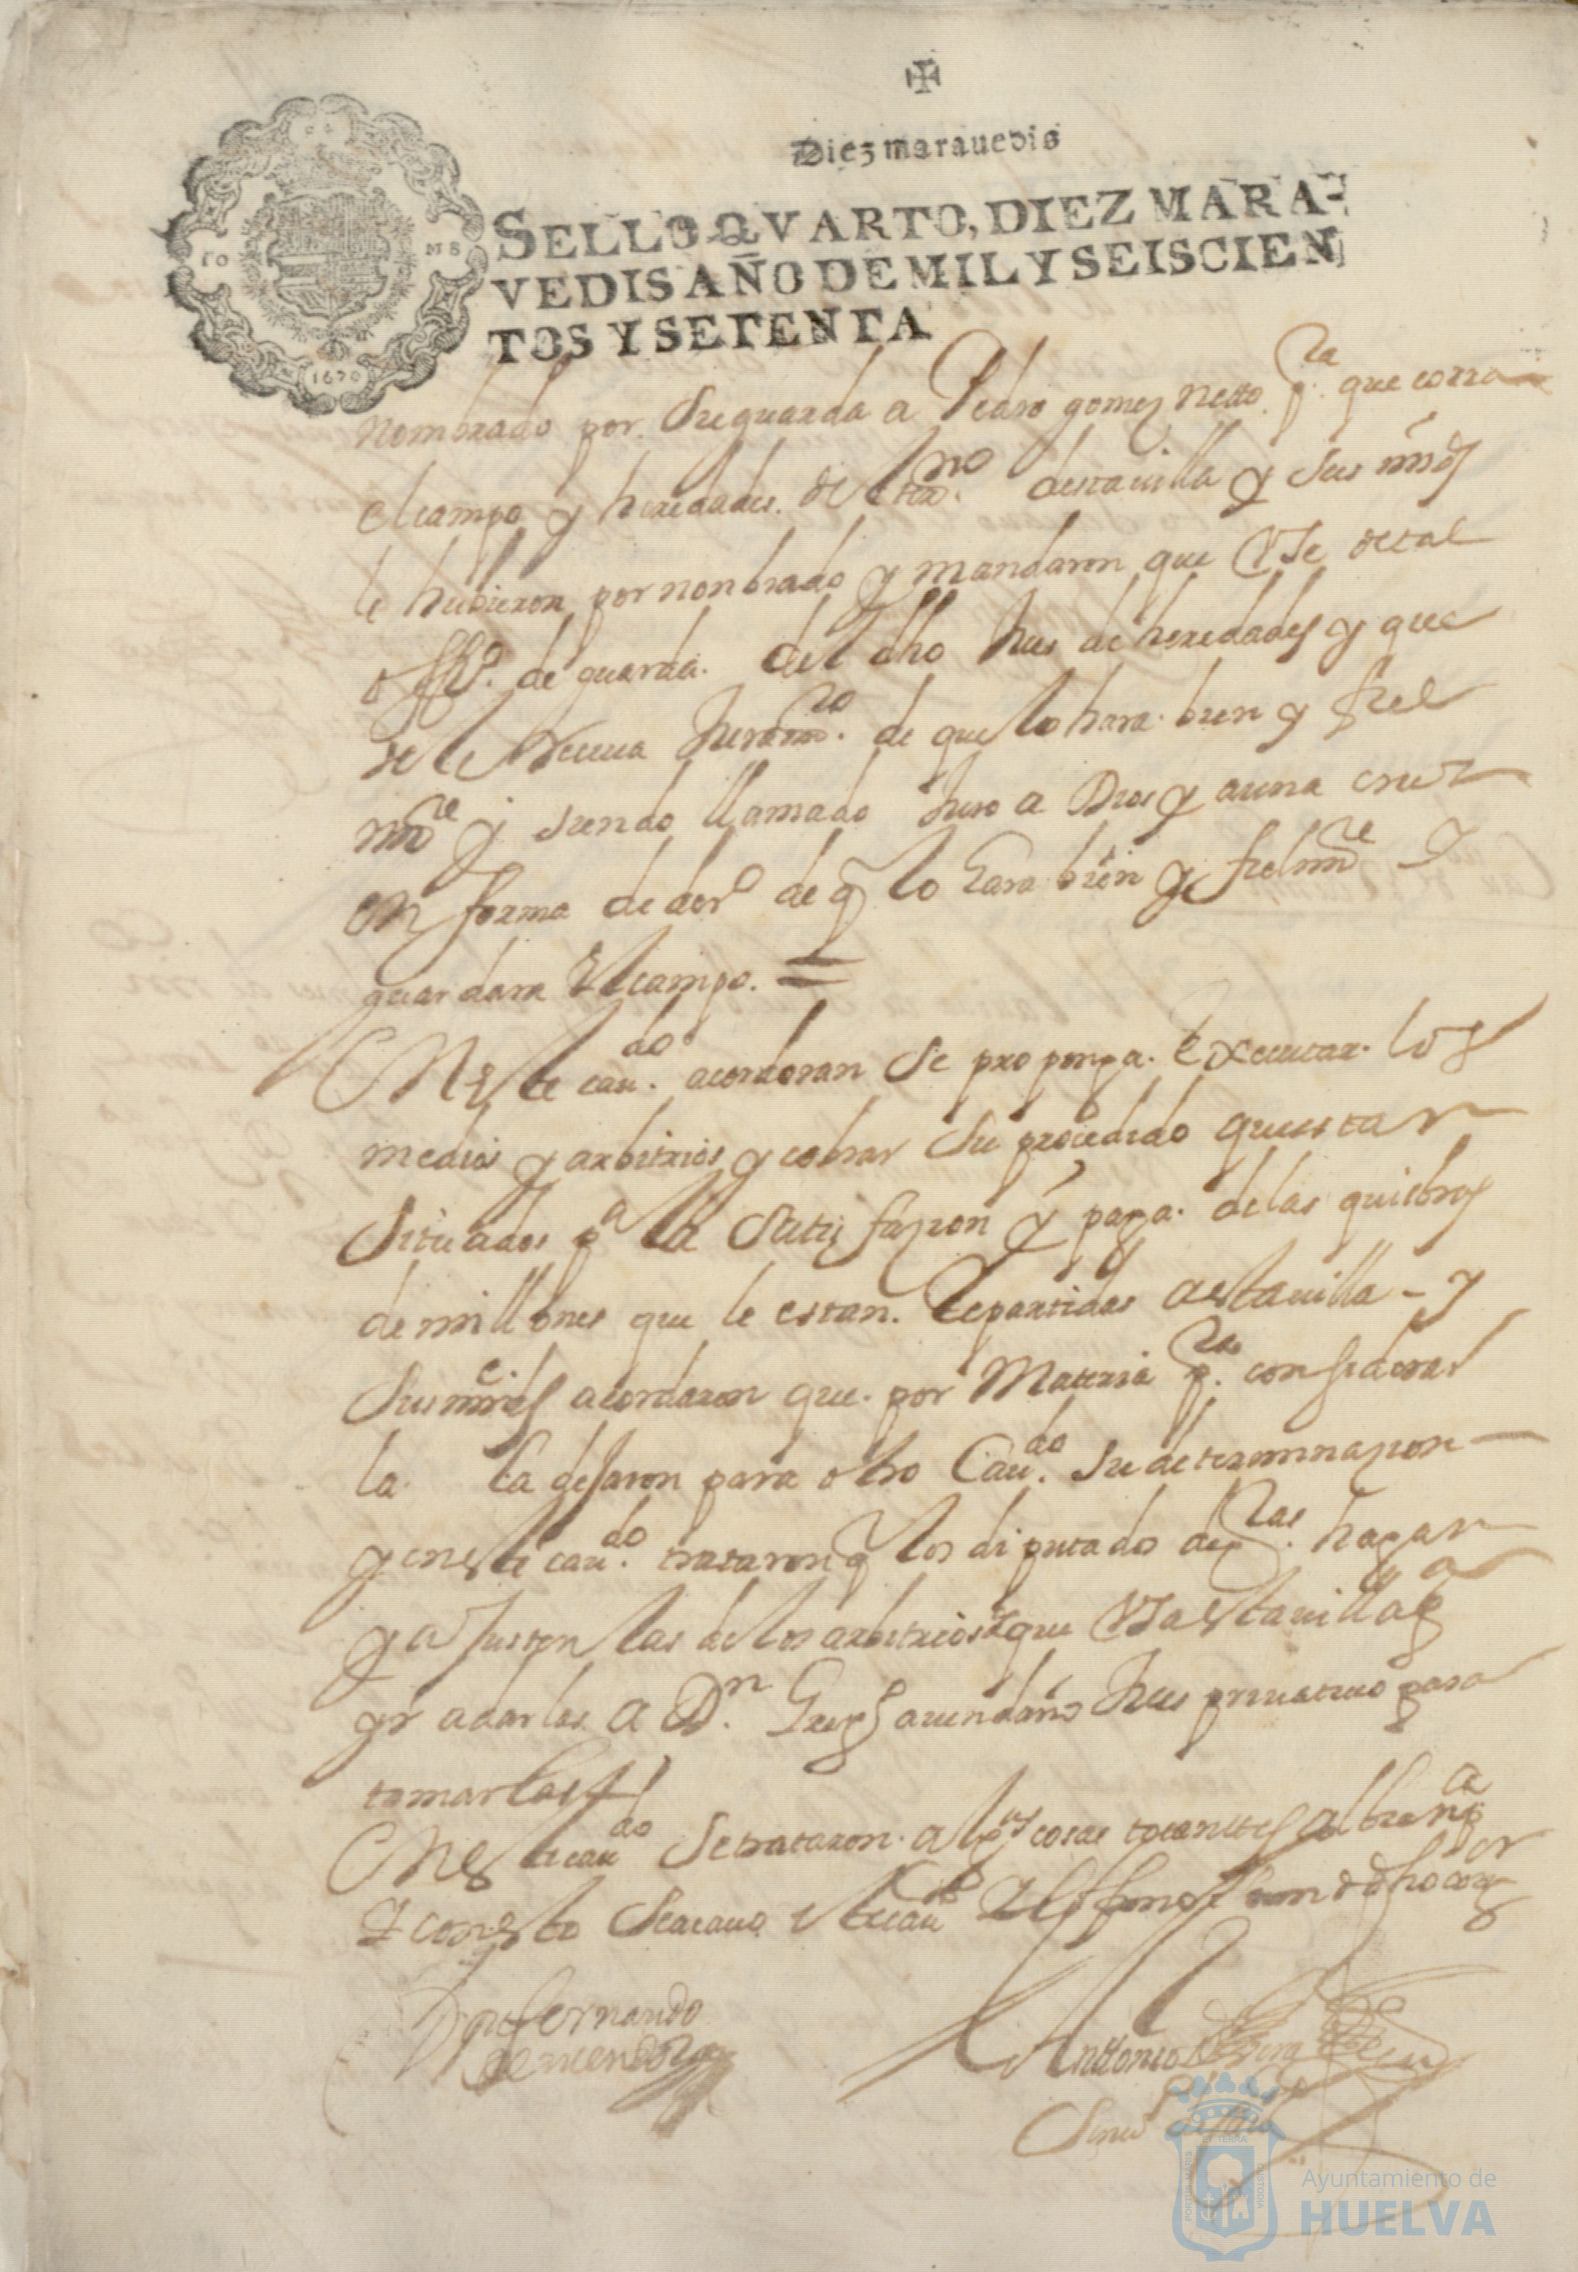 Diez maravedis
SELLO QVARTO, DIEZ MARA-
VEDIS AÑO DE MIL Y SEISCIEN
TOS Y SETENTA
1670
nombrado por Su guarda a Pedro gomez netto pra que corra
el campo y heredades del termno desta villa y Sus mrds
le hubieron por nonbrado y mandaron que Vse de tal
offo de guarda del dho de heredades y que
se le Reciua Juramto de que lo hara bien y fiel
mte y siendo llamado Juro a Dios y a una cruz
en forma de dero de q lo hara bien y fielmte y
guardara El campo =
En este caudo acordaran Se proponga Executar los
medios y arbitrios y cobrar Su procedido questan
Situados pa la Satisfazion y paga de las quiebras
de millones que le estan Repartidas a esta uilla - y
Sus mrcedes acordaron que por Materia pra considerar
la la dejaron para otro Caudo Su determinazion
y en este caudo trataron q los diputados de qtas hagan
y a Justen las de los arbitrios que Vsa esta uilla
y adarlas a Dn Grego auendaño Jues priuatiuo para
tomarlas
En este caudo Se trataron algas cosas tocantes al bien
Y con esto Se acauo este caudo Y lo firmo el Sor dho corr
Don fernando
de mendoza
Antonio
Ayuntamiento de
HUELVA